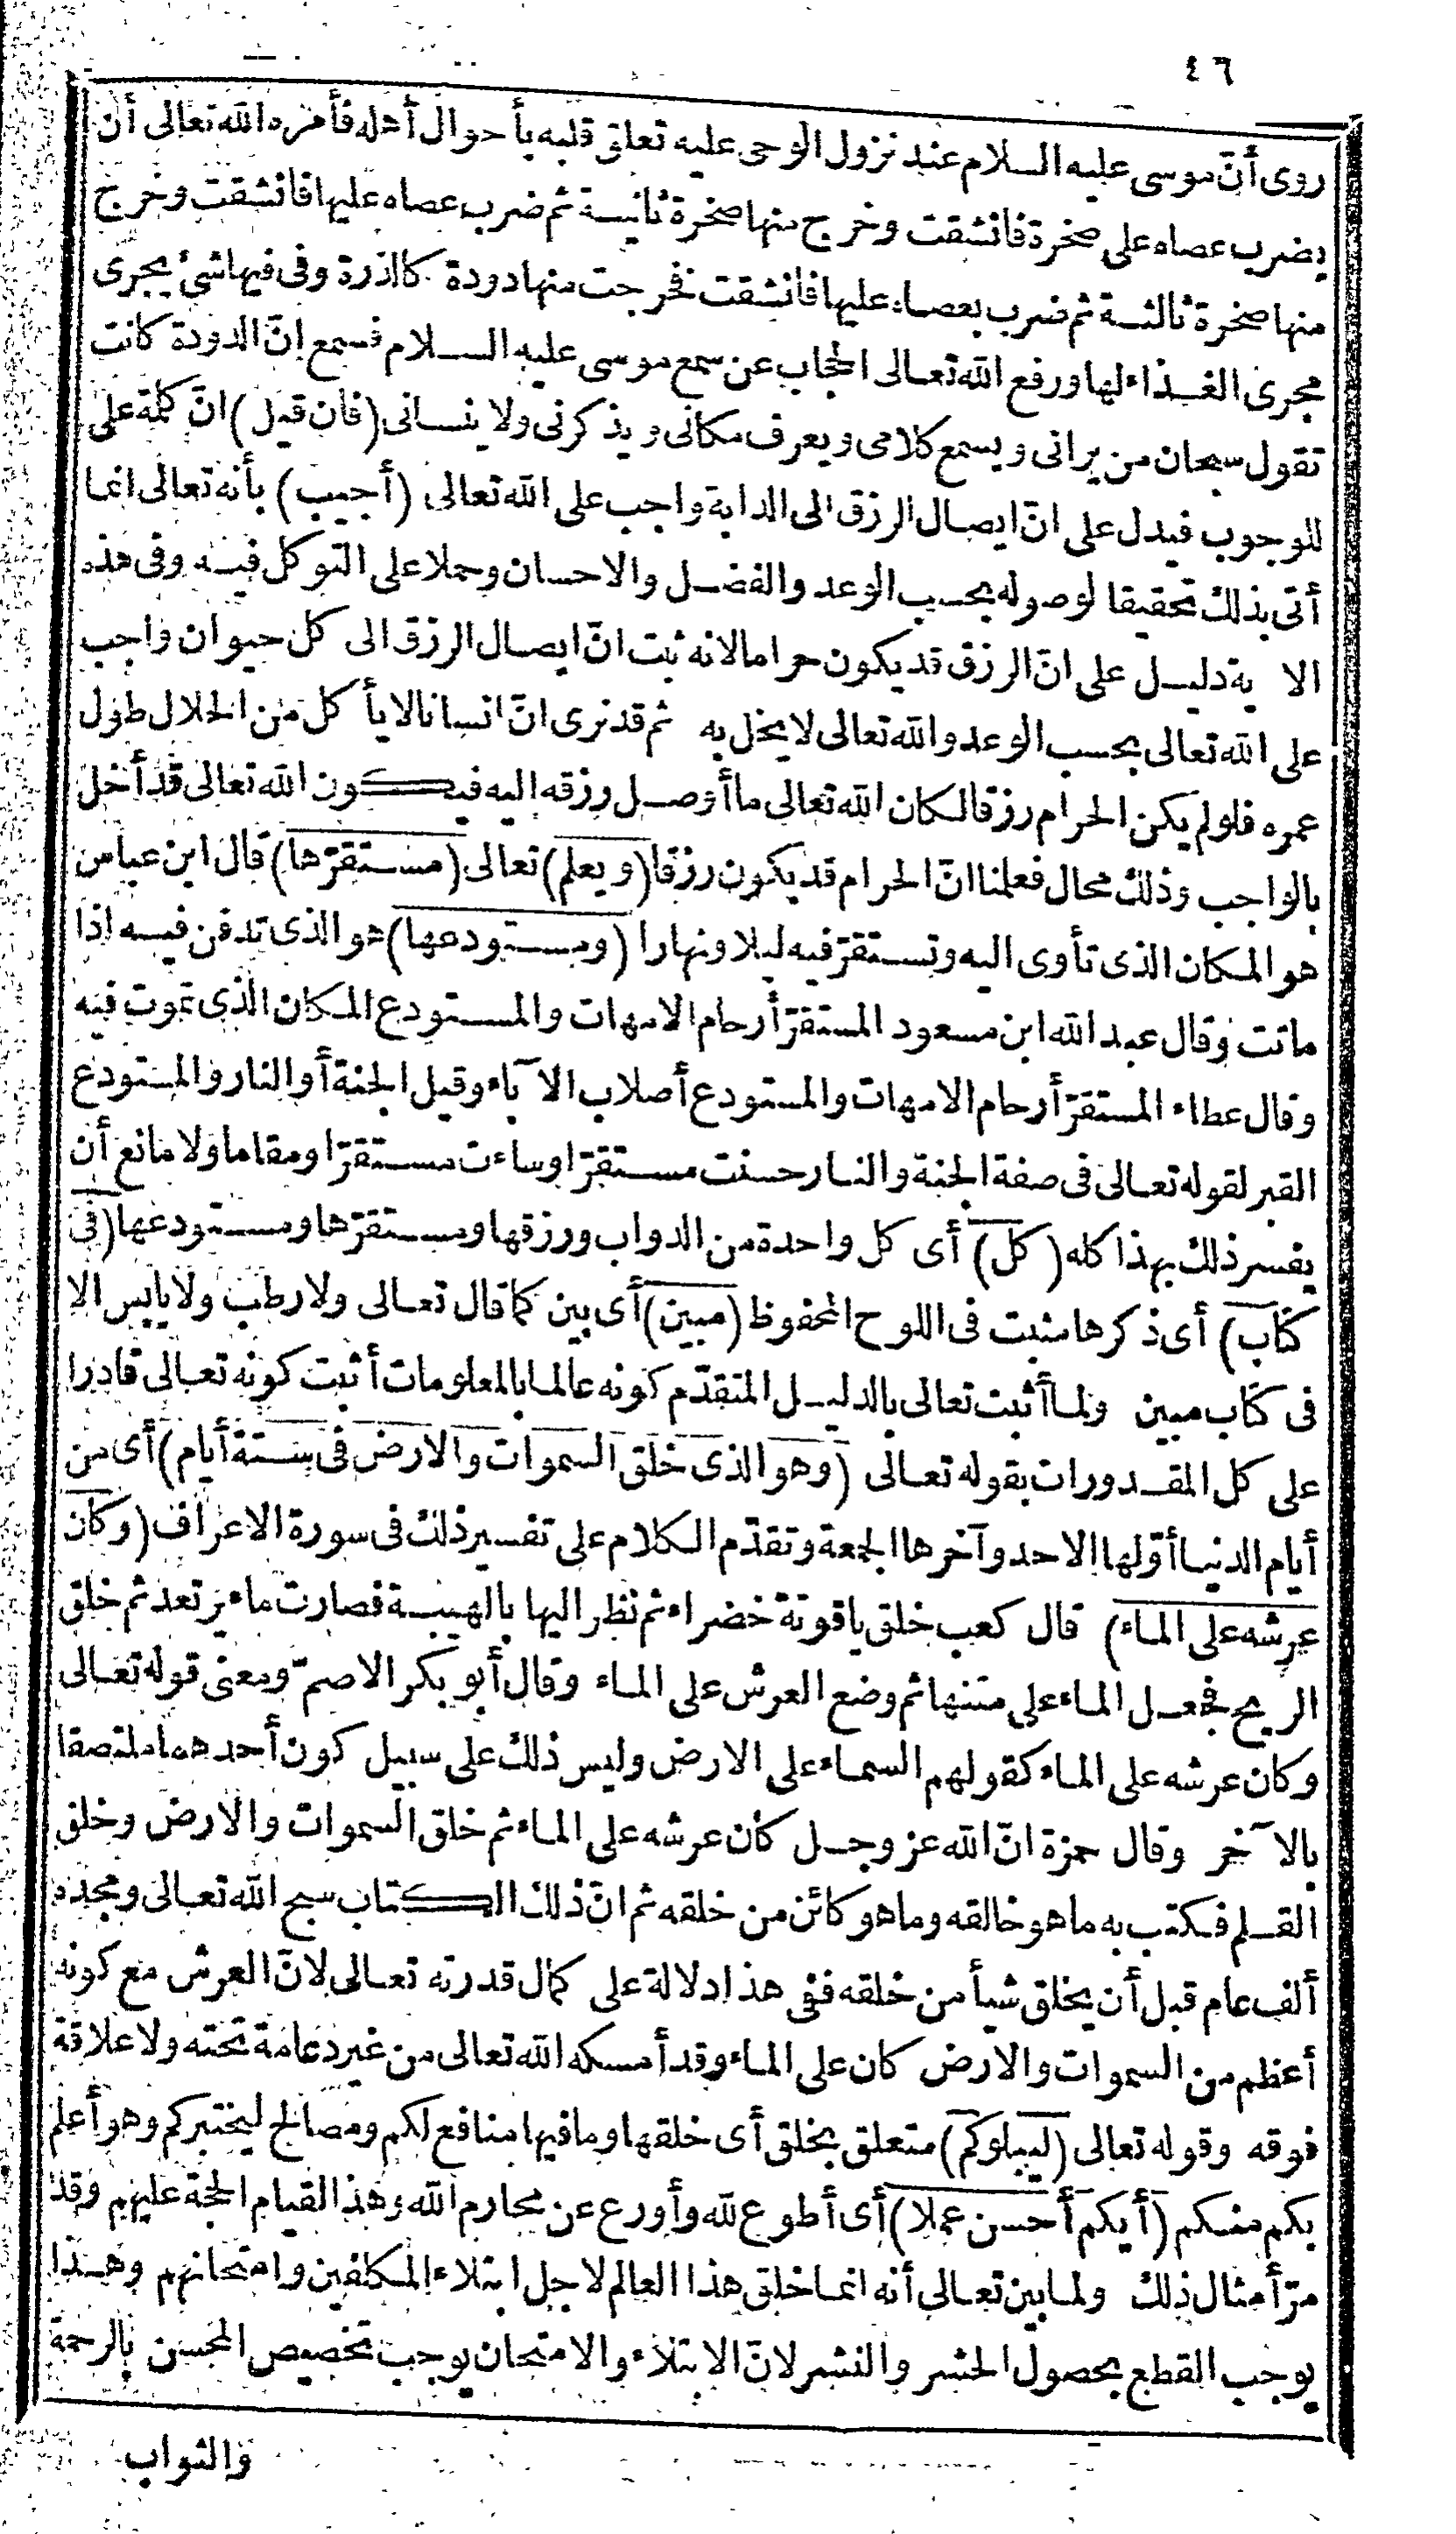 ٤٦
روى أنّ موسى عليه السلام عند نزول الوحى عليه تعلق قلبه بأحوال أهله فأمره الله تعالى أن
يضرب عصاه على صخرة فانشقت وخرج منها صخرة ثانية ثم ضرب عصاه عليها فانشقت وخرج
منها صخرة ثالثة ثم ضرب بعصاه عليها فانشقت فخرجت منها دودة كالذرة وفى فيها شئ يجرى
مجرى الغذاء لها ورفع الله تعالى الحجاب عن سمع موسى عليه السلام فسمع انّ الدودة كانت
تقول سبحان من يرانى ويسمع كلامى ويعرف مكانى ويذكرنى ولا ينسانى (فان قيل) انّ كلمة على
للوجوب فيدل على انّ ايصال الرزق الى الدابة واجب على الله تعالى (أجيب) بأنه تعالى انما
أتى بذلك تحقيقا لوصوله بحسب الوعد والفضل والاحسان وحملا على التوكل فيه وفى هذه
الآية دليل على انّ الرزق قد يكون حراما لانه ثبت انّ ايصال الرزق الى كل حيوان واجب
على الله تعالى بحسب الوعد والله تعالى لا يخل به ثم قد نرى انّ انسانا لا يأكل من الحلال طول
عمره فلو لم يكن الحرام رزقا لكان الله تعالى ما أوصل رزقه اليه فيكون الله تعالى قد أخل
بالواجب وذلك محال فعلمنا انّ الحرام قد يكون رزقا (ويعلم) تعالى (مستقرّها) قال ابن عباس
هو المكان الذى تأوى اليه وتستقرّ فيه ليلا ونهارا (ومستودعها) هو الذى تدفن فيه اذا
ماتت وقال عبد الله ابن مسعود المستقرّ أرحام الامهات والمستودع المكان الذى تموت فيه
وقال عطاء المستقرّ أرحام الامهات والمستودع أصلاب الآباء وقيل الجنة أو النار والمستودع
القبر لقوله تعالى فى صفة الجنة والنار حسنت مستقرّا وساءت مستقرّا ومقاما ولا مانع أن
يفسر ذلك بهذا كله (كل) أى كل واحدة من الدواب ورزقها ومستقرّها ومستودعها (فى
كتاب) أى ذكرها مثبت فى اللوح المحفوظ (مبين) أى بين كما قال تعالى ولا رطب ولا يابس الا
فى كتاب مبين ولما أثبت تعالى بالدليل المتقدّم كونه عالما بالمعلومات أثبت كونه تعالى قادرا
على كل المقدورات بقوله تعالى (وهو الذى خلق السموات والارض فى ستة أيام) أى من
أيام الدنيا أوّلها الاحد وآخرها الجمعة وتقدّم الكلام على تفسير ذلك فى سورة الاعراف (وكان
عرشه على الماء) قال كعب خلق ياقوتة خضراء ثم نظر اليها بالهيبة فصارت ماء يرتعد ثم خلق
الريح فجعل الماء على متنها ثم وضع العرش على الماء وقال أبو بكر الاصمّ ومعنى قوله تعالى
وكان عرشه على الماء كقولهم السماء على الارض وليس ذلك على سبيل كون أحدهما ملتصقا
بالآخر وقال حمزة انّ الله عز وجل كان عرشه على الماء ثم خلق السموات والارض وخلق
القلم فكتب به ما هو خالقه وما هو كائن من خلقه ثم انّ ذلك الكتاب سبح الله تعالى ومجده
ألف عام قبل أن يخلق شيأ من خلقه ففى هذا دلالة على كمال قدرته تعالى لانّ العرش مع كونه
أعظم من السموات والارض كان على الماء وقد أمسكه الله تعالى من غير دعامة تحته ولا علاقة
فوقه وقوله تعالى (ليبلوكم) متعلق بخلق أى خلقها وما فيها منافع لكم ومصالح ليختبركم وهو أعلم
بكم منكم (أيكم أحسن عملا) أى أطوع لله وأورع عن محارم الله وهذا القيام الحجة عليهم وقد
مرّ أمثال ذلك ولما بين تعالى أنه انما خلق هذا العالم لاجل ابتلاء المكلفين وامتحانهم وهذا
يوجب القطع بحصول الحشر والنشر لانّ الابتلاء والامتحان يوجب تخصيص المحسن بالرحمة
والثواب